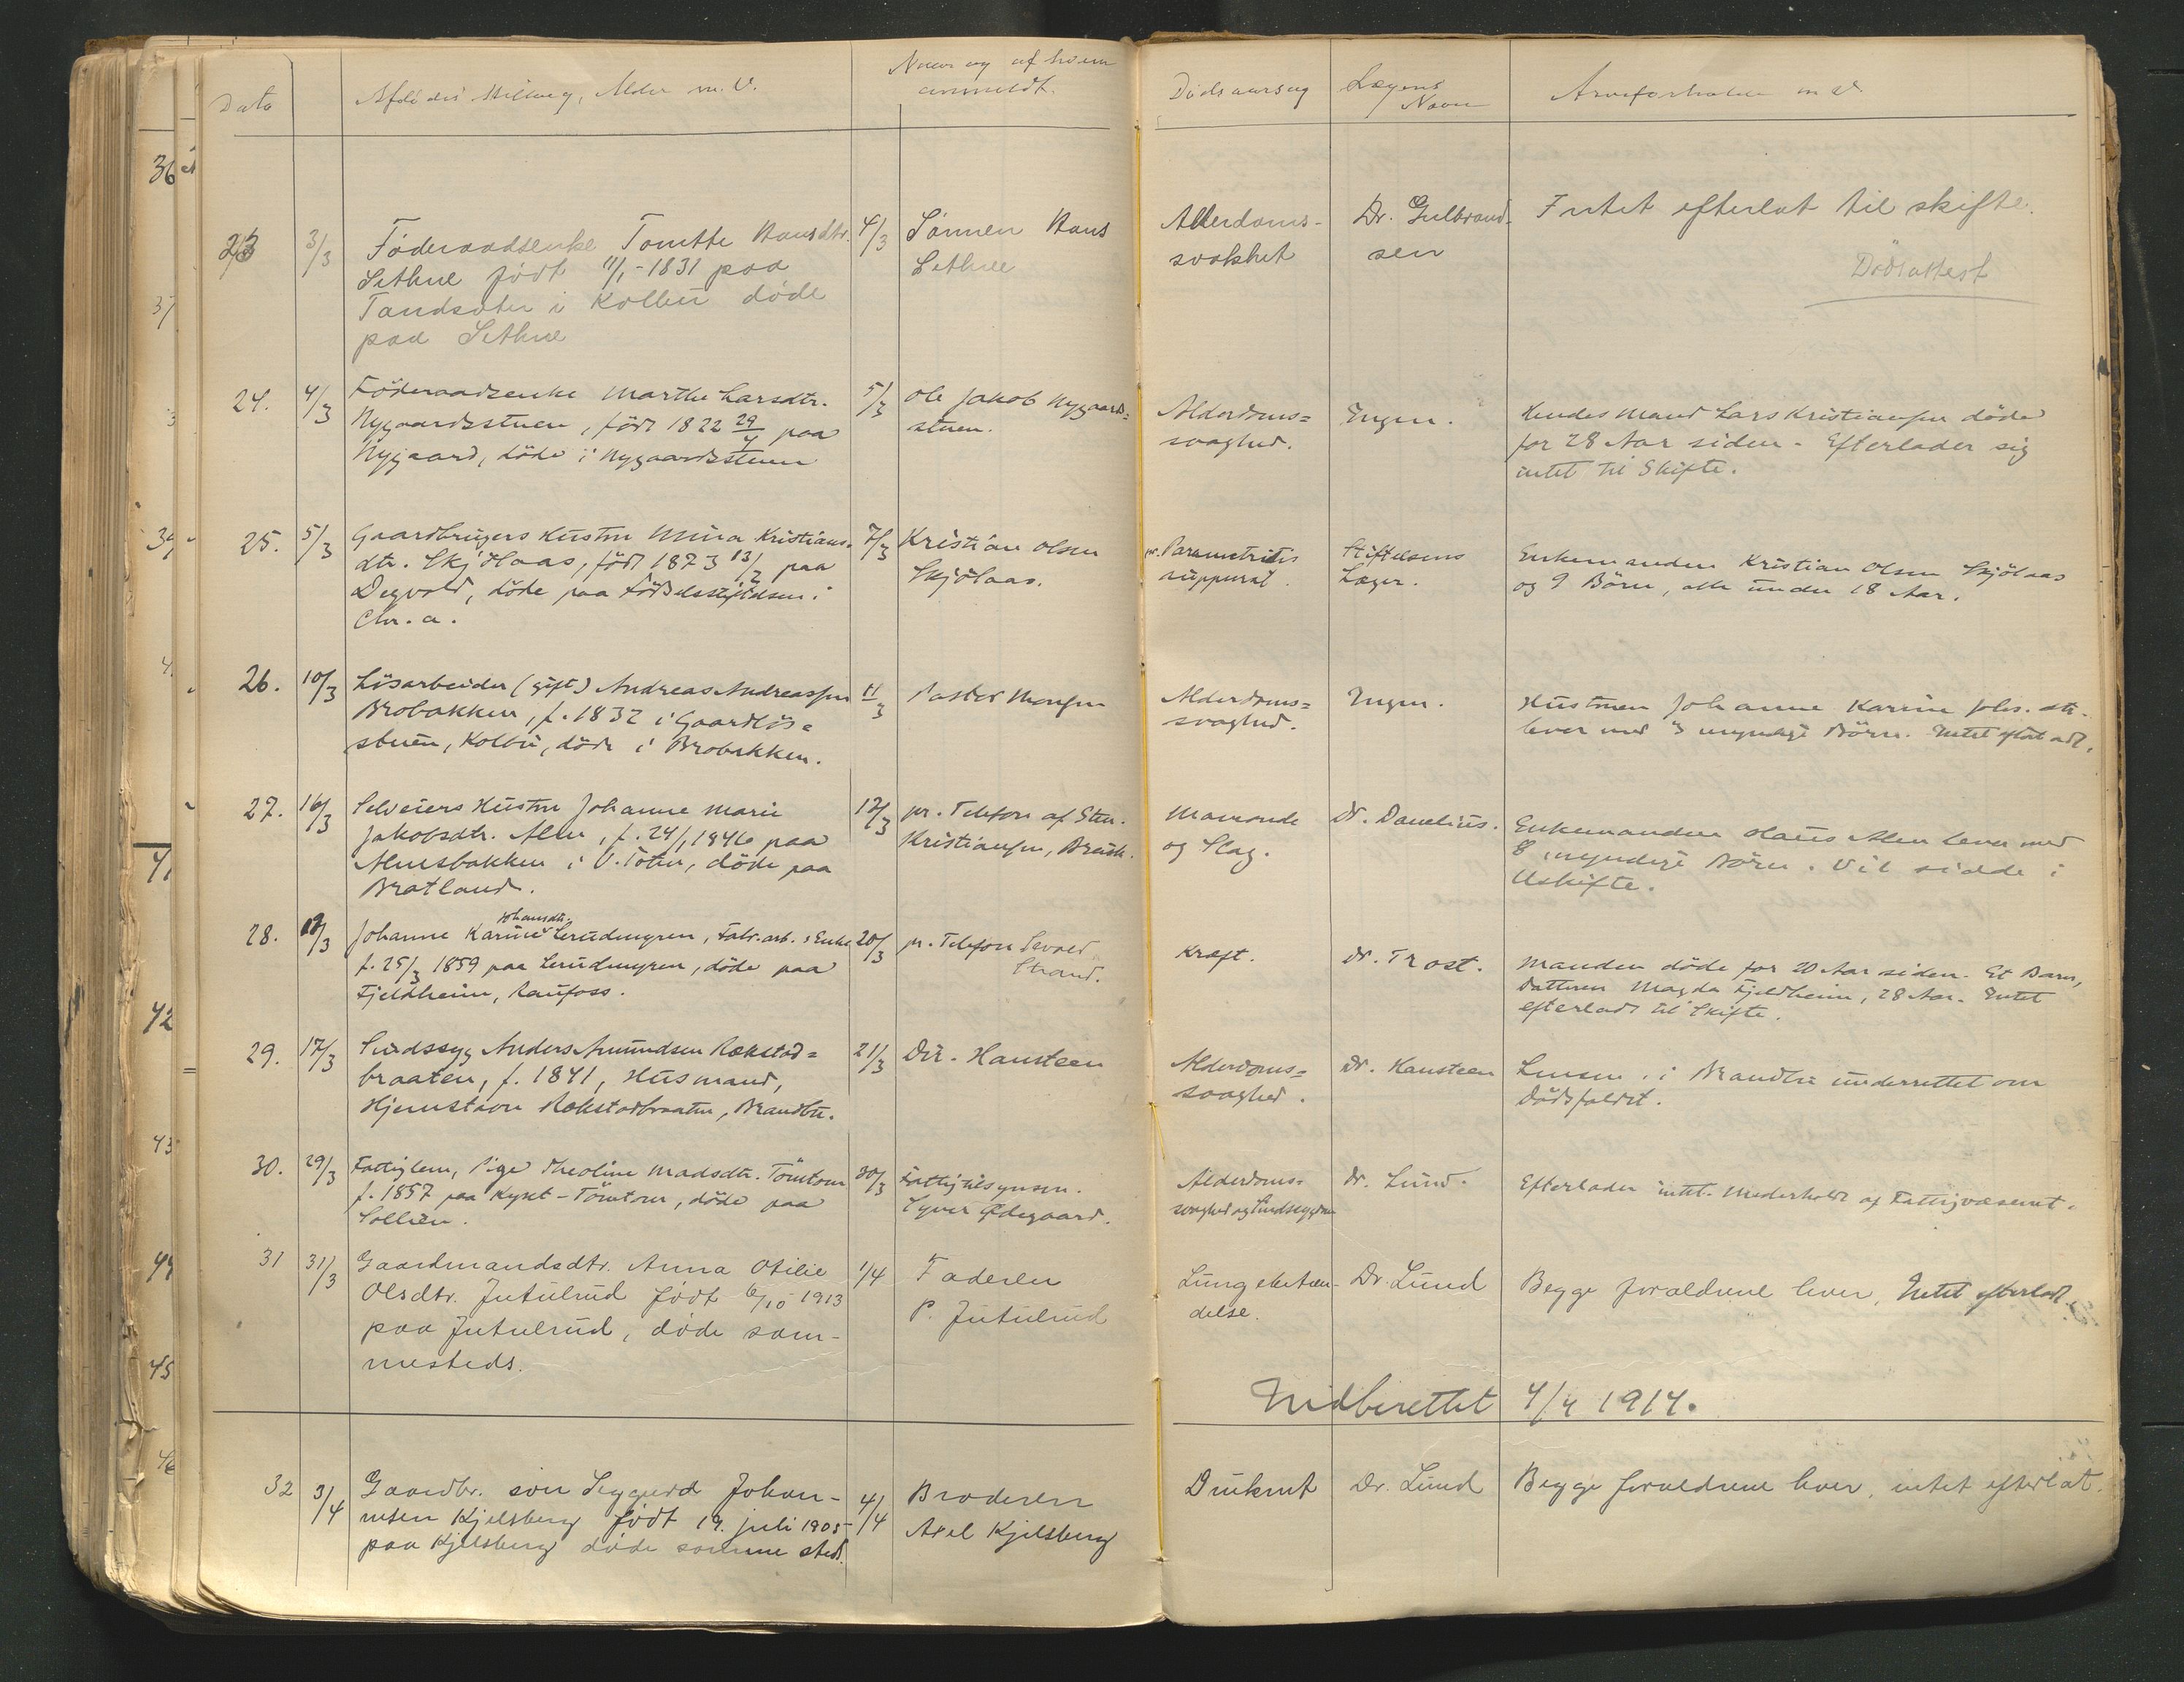 Dato
Afdödes Stilling, Alder m. V.
Naar og af hvem
anmeldt.
Dödsaarsag
Lægens
Navn
Arveforholde m. V.
23
3/3
Föderaadsenke Tomtte Hansdtr.
Sethne födt 11/1-1831 paa
Tandsæter i Kolbu döde
paa Sethne
4/3
Sönnen Hans
Sethne
Alderdoms-
svakhet
Dr. Gulbrand-
sen
Intet efterlat til skifte.
Dödsattest
24.
4/3
Föderaadsenke Marthe Larsdtr.
Nygaardsstuen, född 1822 29/4 paa
Nygaard, döde i Nygaardsstuen
5/3
Ole Jakob Nygaards=
stuen.
Alderdoms=
svaghed.
Ingen.
Hendes Mand Lars Kristiansen döde
for 28 Aar siden. Efterlader sig
intet til Skifte.
25.
5/3
Gaardbrugers Hustru Mina Kristians=
dtr. Skjölaas, född 1873 13/2 paa
Degvold, döde paa Födselsstiftelsen i
Chr.a.
7/3
Kristian Olsen
Skjölaas.
Parametritis
suppurat.
Stiftelsens
Læger.
Enkemanden Kristian Olsen Skjölaas
og 9 Börn, alle under 18 Aar.
26.
10/3
Lösarbeider (gift) Andreas Andreassen
Brobakken, f. 1832 i Gaardlös=
stuen, Kolbu, döde i Brobakken.
11/3
Pastor Monsen
Alderdoms=
svaghed.
Ingen.
Hustruen Johanne Karine Johs. dtr.
lever med 3 myndige Börn. Intet efterladt.
27.
16/3
Selveiers Hustru Johanne Marie
Jakobsdtr. Alm, f. 24/1 1846 paa
Almsbakken i V. Toten, döde paa
Bratland.
17/3
pr. Telefon af Sten.
Kristiansen, Breisk.
Mavonde
og Slag.
Dr. Danelius.
Enkemanden Olaus Alm lever med
8 myndige Börn. Vil sidde i
Uskifte.
28.
18/3
Johansdtr.
Johanne Karine Lerudmyren, Fabr. arb.s Enke
f. 25/3 1859 paa Lerudmyren, döde paa
Fjeldheim, Raufoss.
20/3
pr. Telefon Sevald
Strand.
Kræft.
Dr. Trost.
Manden döde for 20 Aar siden. Et Barn,
Datteren Magda Fjeldheim, 28 Aar. Intet
efterladt til Skifte.
29.
17/3
Sindssyg Anders Amundsen Rökstad=
braaten, f. 1841, Husmand,
Hjemstavn Rökstadbraaten, Brandbu.
21/3
Dir. Hansteen
Alderdoms=
svaghed.
Dr. Hansteen
Lensm. i Brandbu underrettet om
Dödsfaldet.
30.
29/3
Fattiglem, Pige Theoline Madsdtr. Tömtom
f. 1857 paa Kyset-Tömtom, döde paa
Sollien.
30/3
Fattigtilsynsm.
Syver Ödegaard.
Alderdoms=
svaghed og Sindssygdom
Dr. Lund.
Efterlader intet. Underholdt af Fattigvæsenet.
31
31/3
Gaardmandsdtr. Anna Otilie
Olsdtr. Jutulrud födt 6/10 1913
paa Jutulrud, döde sam-
mesteds.
1/4
Faderen
P. Jutulrud
Lungebetæn-
delse.
Dr. Lund
Begge forældrene lever. Intet efterladt.
Indberettet 4/4 1914.
32
3/4
Gaardbr. sön Siggurd Johan-
nesen Kjelsberg födt 19. juli 1905
paa Kjelsberg döde samme sted.
4/4
Broderen
Axel Kjelsberg
Druknet
Dr. Lund
Begge forældrene lever, intet efterlat.
36
37
41
42
43
44
45
46